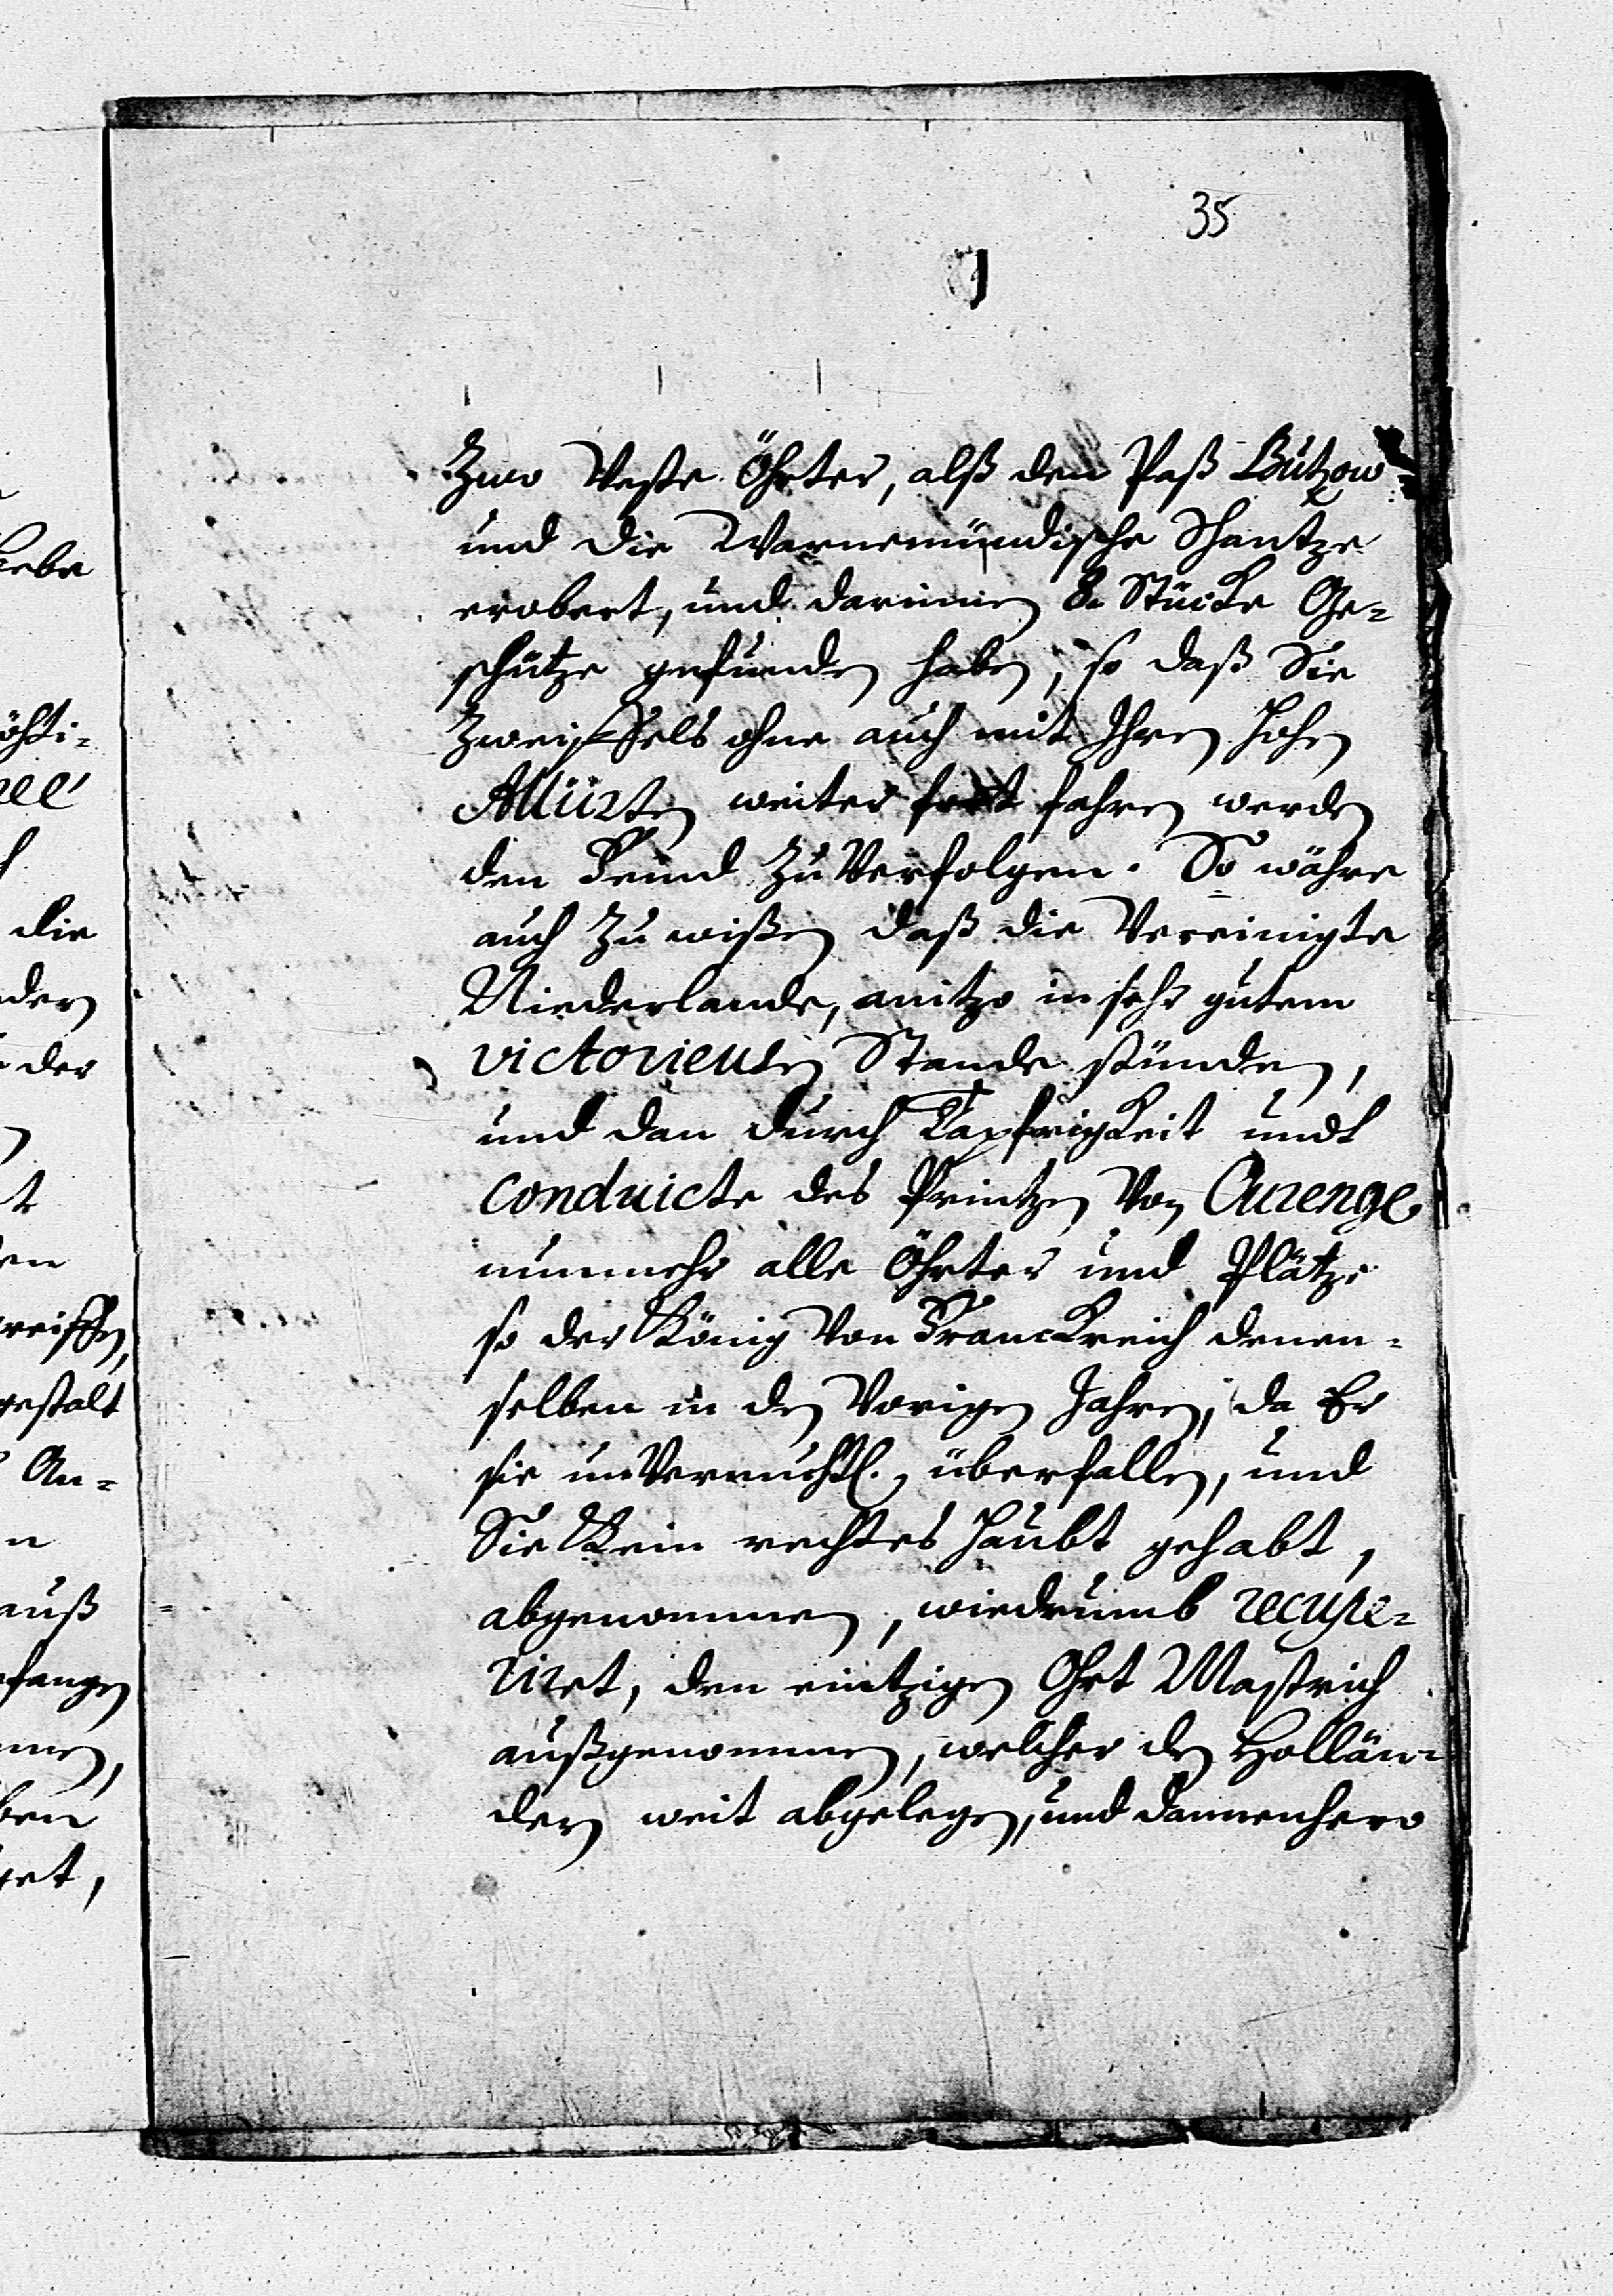 35
Zwo Veste Öhrter, alß den Paß Butzow
und die Warnemündische Schantze
erobert, und darinnen 8. Stücke Ge¬
schütze gefunden haben, so daß Sie
Zweiffels ohne auch mit Ihren Hohen
Alliirten weiter fort fahren werden
den Feind zu Verfolgen. So währe
auch zu wißen daß die Vereinigte
Niederlande, anitzo in sehr gutem
victorieusen Stande stünden,
und dan durch Tapfrigkeit undt
conduicte des Printzen von Aurenge
nunmehr alle Öhrter und Plätze
so der König von Franckreich denen¬
selben in den Vorigen Jahren, da Er
sie überfallen, und
Sie Kein rechtes Haubt gehabt,
abgenommen, wiedrumb recupe¬
riret, den eintzigen Ohrt Mastrich
außgenommen, welcher den Hollän¬
dern weit abgelegen, und dannenhero
die
der
auß
An¬